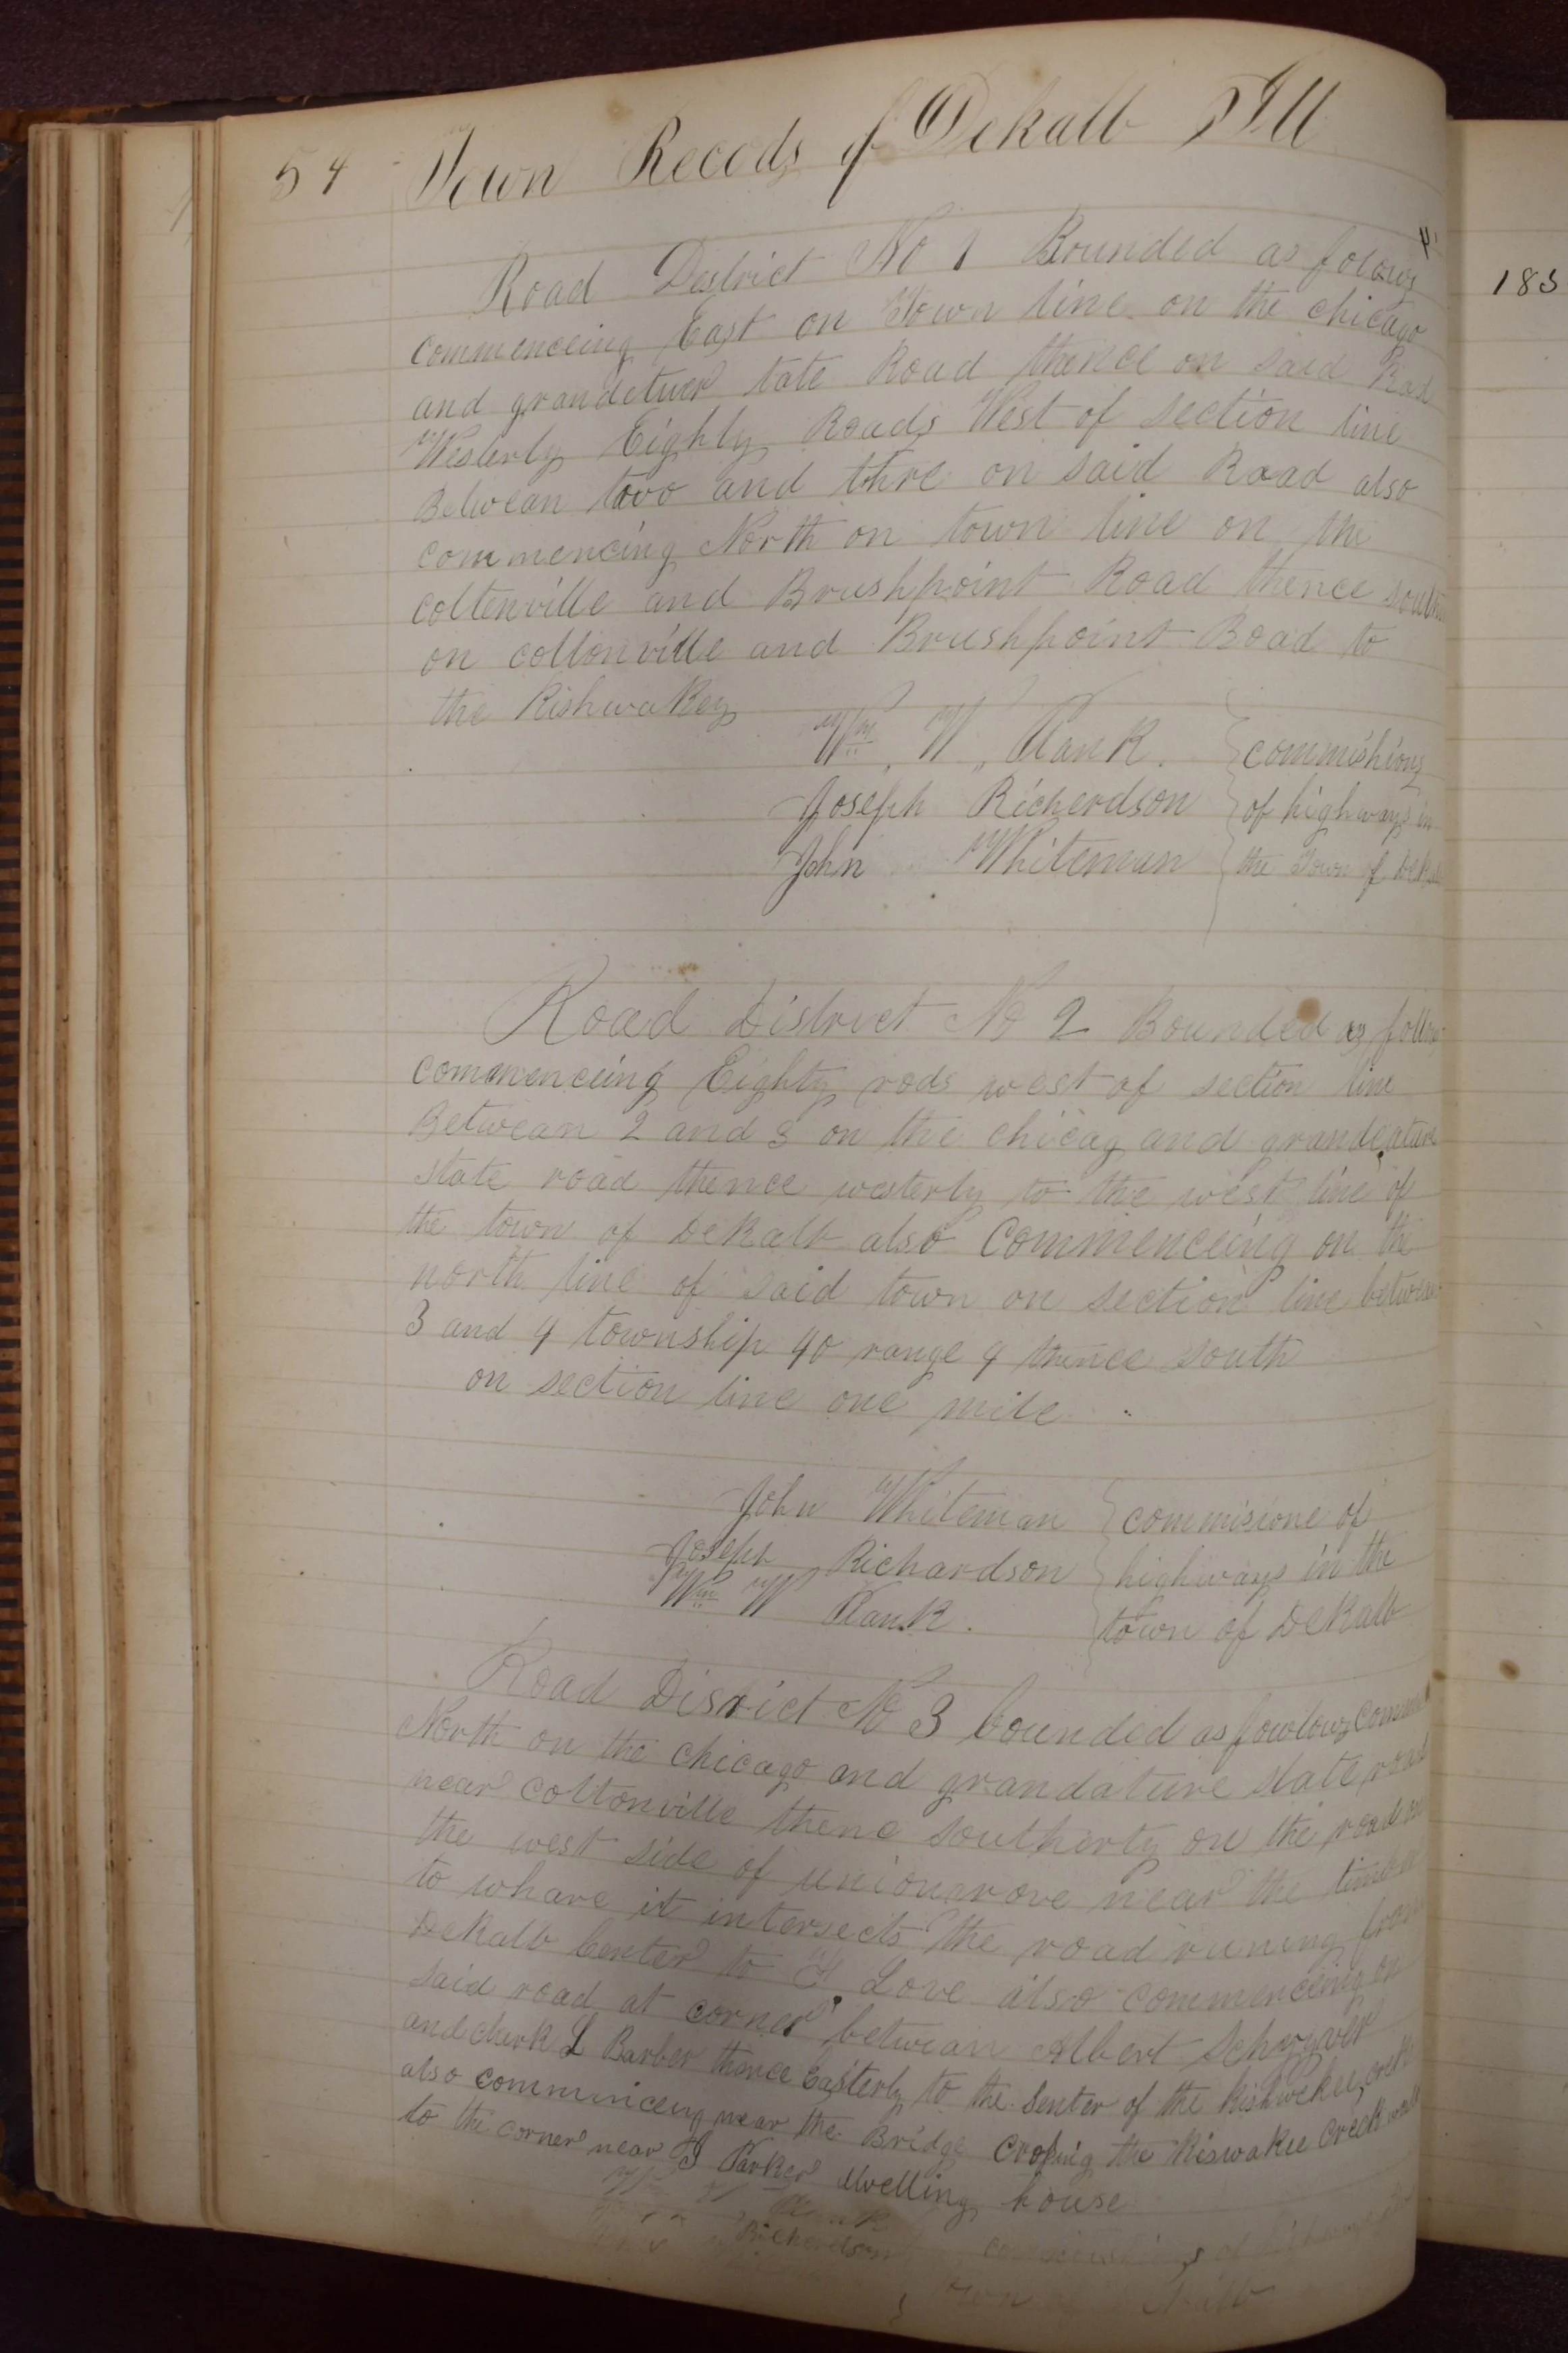 54 Town Recods of Dekalb Ill
Road District No 1 Bounded as folows
commenceing East on Town line on the chicago
and grandeturer tate Road thence on said Road
Westerly Eighty Roads West of section line
Betwean two and thre on said Road also
commencing North on town line on the
coltenville and Brushpoint Road thence south
on coltonville and Brushpoint Road to
the Kishwakey
Wm. W. Plank. commishions
Joseph Richerdson of highways in
John Whiteman the Town of Dekalb
Road District No 2 Bounded as follows
commenceing Eighty rods west of section line
Betwean 2 and 3 on the chicag and grandeature
state road thence westerly to the west line of
the town of DeKalb also Commenceing on the
north line of said town on section line betwean
3 and 4 township 40 range 4 thence south
on section line one mile
John Whiteman commisione of
Joseph Richardson highways in the
Wm W Plank. town of DeKalb
Road Disrict No 3 bounded as fowlows
North on the chicago and grandature state road
near coltonville thenc southerty on the road on
the west side of uniongrove near the timber
to whare it intersects the road runing from
DeKalb Center to Love also commenceing on
said road at corner betwean Albert Schryver
and L Barber thence Easterly to the Senter of the Kishwekee creek
also comminceing near the Bridge Crosing the Kiswakee Creek
to the corner near Parker dwelling house
Richerdson
183